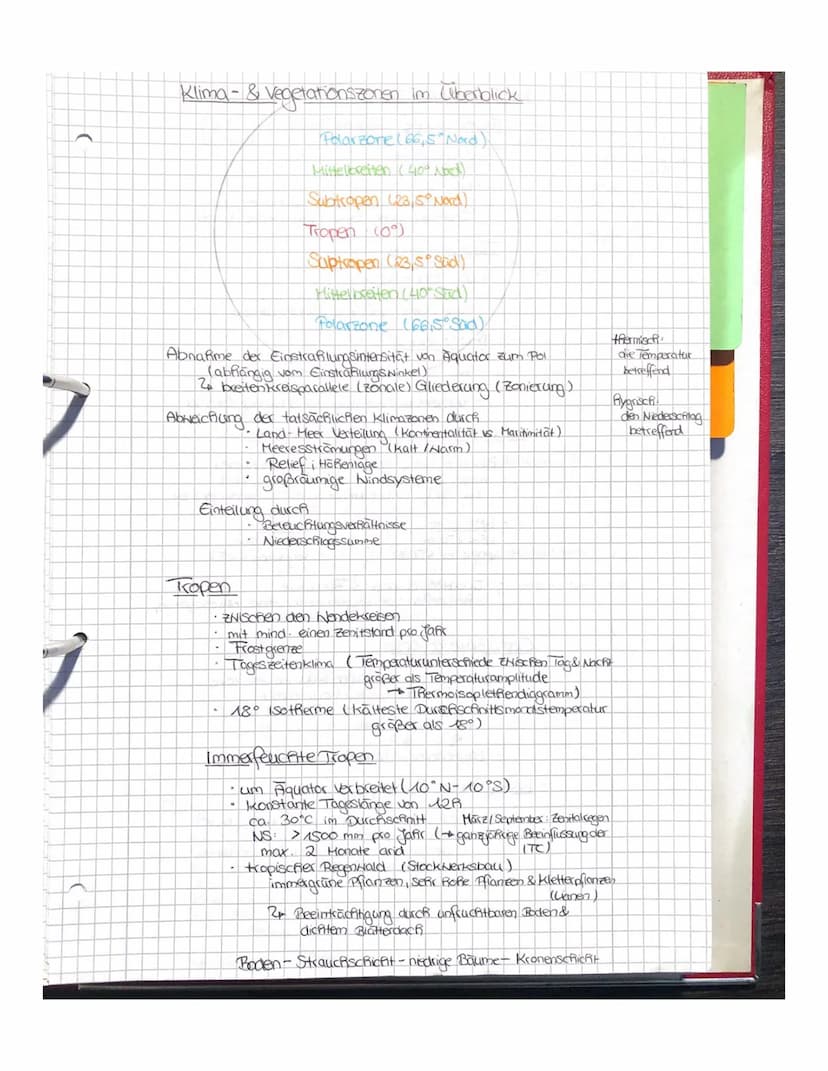 Klima- & Vegetationszonen im Überblick
Polarzone (66,5° Nord)
Mittelbreiten (40° Nord)
Subtropen (23,5° Nord)
Tropen (0°)
Suptropen (23,5° Süd)
Mittelbreiten (40° Süd)
Polarzone (66,5° Süd)
thermisch:
die Temperatur
betreffend
hygrisch:
den Niederschlag
betreffend
Abnahme der Einstrahlungsintensität von Äquator zum Pol
(abhängig vom Einstrahlungswinkel)
↳ breitenkreisparallele (zonale) Gliederung (Zonierung)
Abweichung der tatsächlichen Klimazonen durch
· Land-Meer Verteilung (Kontinentalität vs. Maritimität)
· Meeresströmungen (kalt / warm)
· Relief; Höhenlage
· großräumige Windsysteme
Einteilung durch
· Beleuchtungsverhältnisse
· Niederschlagssumme
Tropen
· zwischen den Wendekreisen
· mit mind. einen Zenitstand pro Jahr
· Frostgrenze
· Tageszeitenklima (Temperaturunterschiede zwischen Tag & Nacht
größer als Temperaturamplitude
→ Thermoisoplethendiagramm)
· 18° Isotherme (kälteste Durchschnittsmonatstemperatur
größer als 18°)
Immerfeuchte Tropen
· um Äquator verbreitet (10°N-10°S)
· Konstante Tageslänge von 12h
ca. 30°C im Durchschnitt März/September: Zenitalregen
NS: >1500 mm pro Jahr (→ ganzjährige Beeinflussung der
max. 2 Monate arid ITC)
· tropischer Regenwald (Stockwerksbau)
immergrüne Pflanzen, sehr hohe Pflanzen & Kletterpflanzen
(Lianen)
↳ Beeinträchtigung durch unfruchtbaren Boden &
dichtem Blätterdach
Boden - Strauchschicht - niedrige Bäume - Kronenschicht